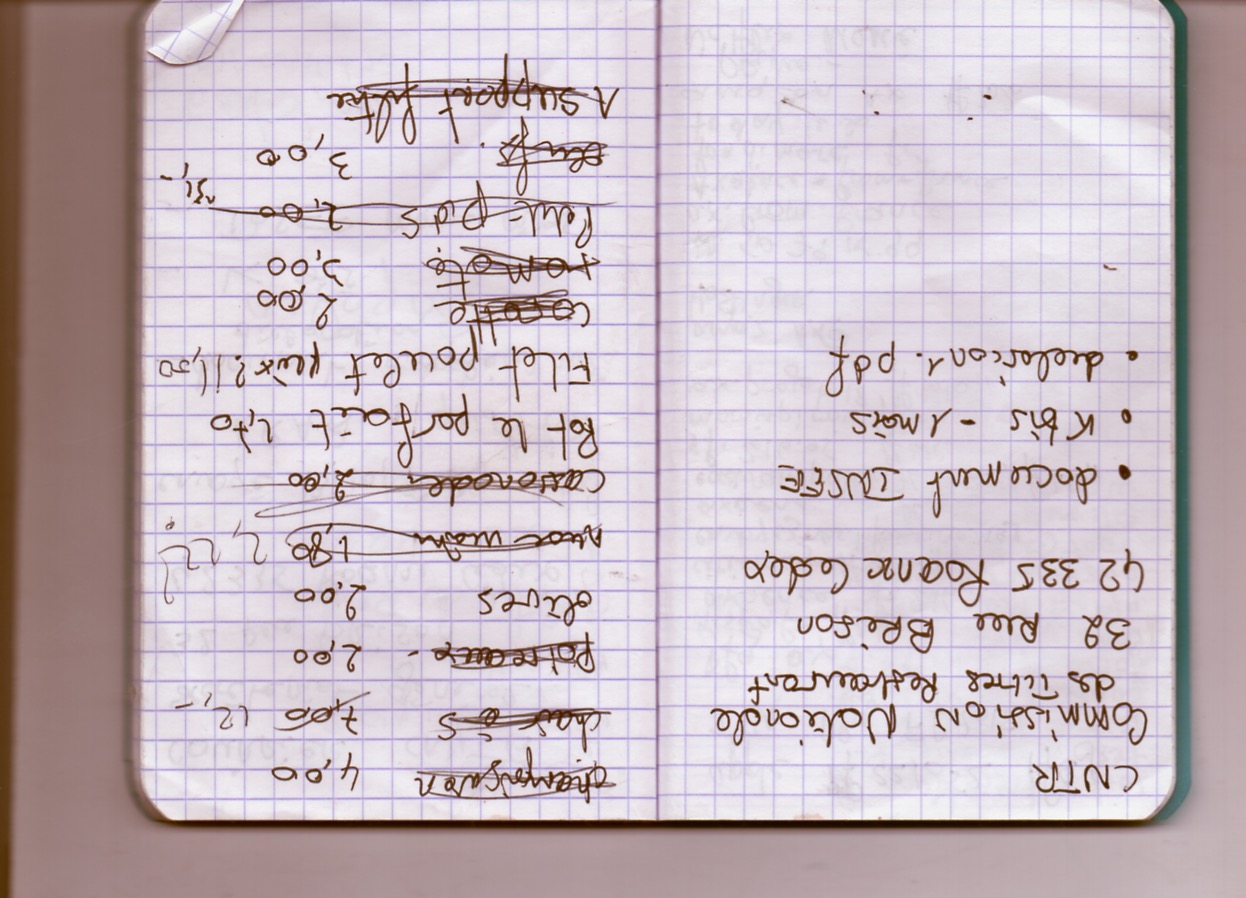 CNTR
Commission Nationale
des Titres Restaurant
32 Rue BRéison
42 335 Roanne Cedex
• document INSEE
• K bis - 1 mois
• declarion1.pdf
champignon 4,00
7,00 12,-
poireaux - 2,00
olives 2,00
1,80
cassonade 2,00
Pot le parfait 4,70
Filet poulet prix? 11,50
cocotte 2,00
tomate 3,00
Petit-pois 2,00
œufs. 3,00
1 support filtre